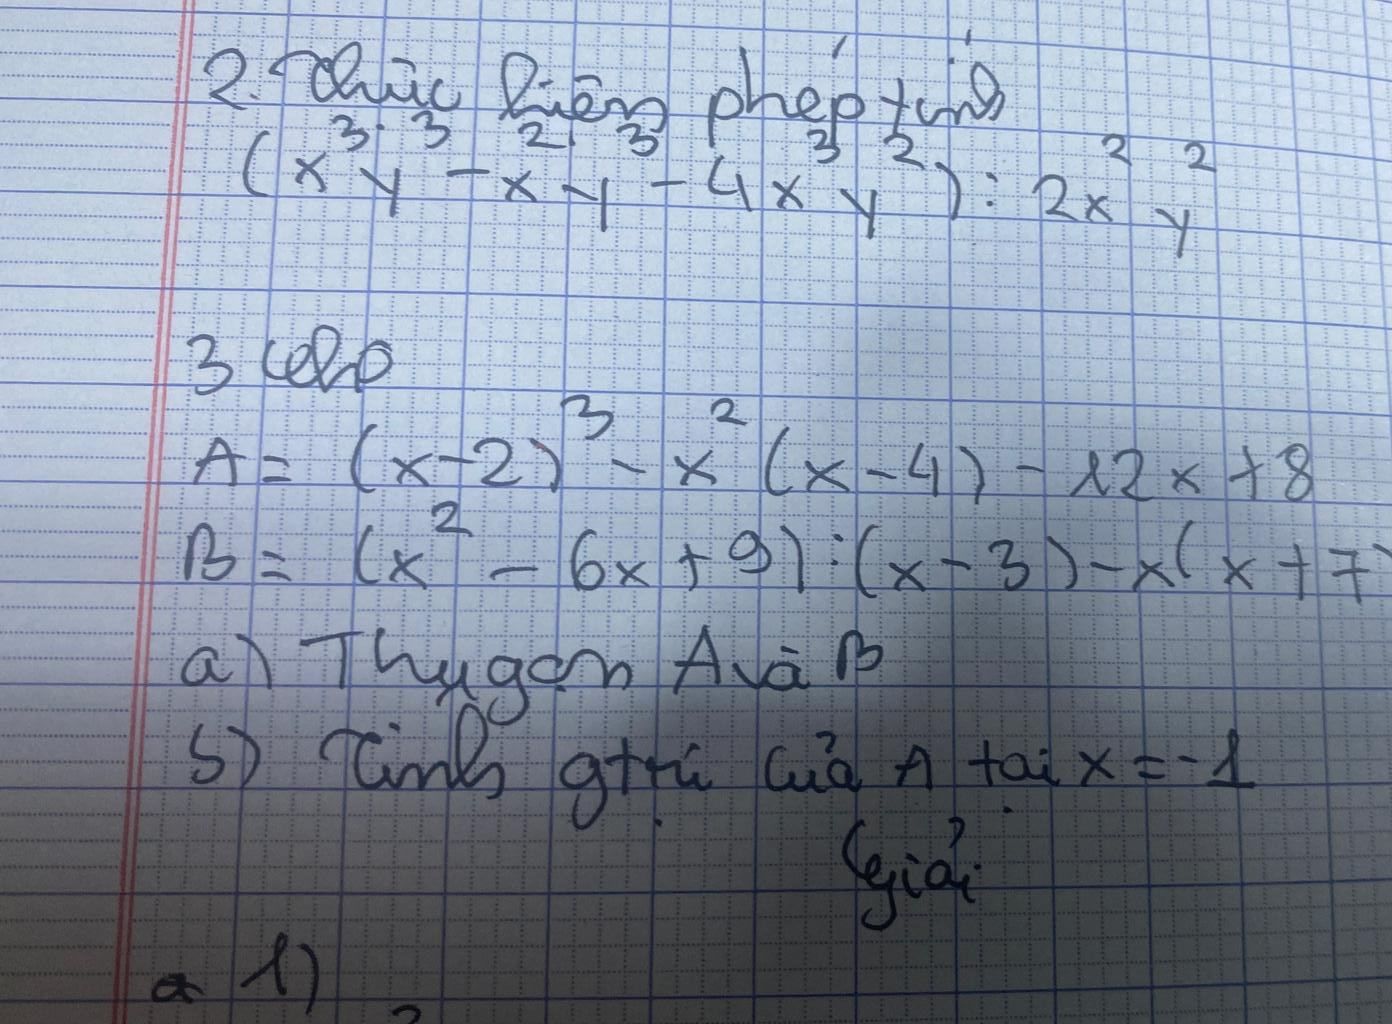 2. Thực hiện phép tính
(x³y³ - x²y³ - 4x³y²) : 2x²y²
3 Cho
A = (x-2)³ - x² (x-4) - 12x + 8
B = (x² - 6x + 9) : (x-3) - x(x+7)
a) Thu gọn A và B
b) Tính gtrị của A tại x = -1
Giải
1)